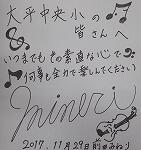 大平中央小の
皆さんへ
いつまでもその素直な心で
何事も全力で楽しんでください
minori
2017.11月29日前田みねり